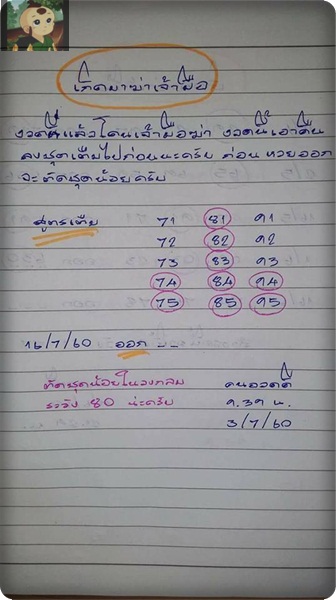 เกิดมาฆ่าเจ้ามือ
งวดที่แล้วโดนเจ้ามือฆ่า งวดนี้เอาคืน
ลงชุดเต็มไปก่อนนะครับ ก่อนหวยออก
จะตัดชุดน้อยครับ
สูตรเต็ม 71 81 91
72 82 92
73 83 93
74 84 94
75 85 95
16/7/60 ออก --
ตัดชุดน้อยในวงกลม คนอวดดี
ระวัง 80 น่ะครับ ๑.๓๑ น.
3/7/60